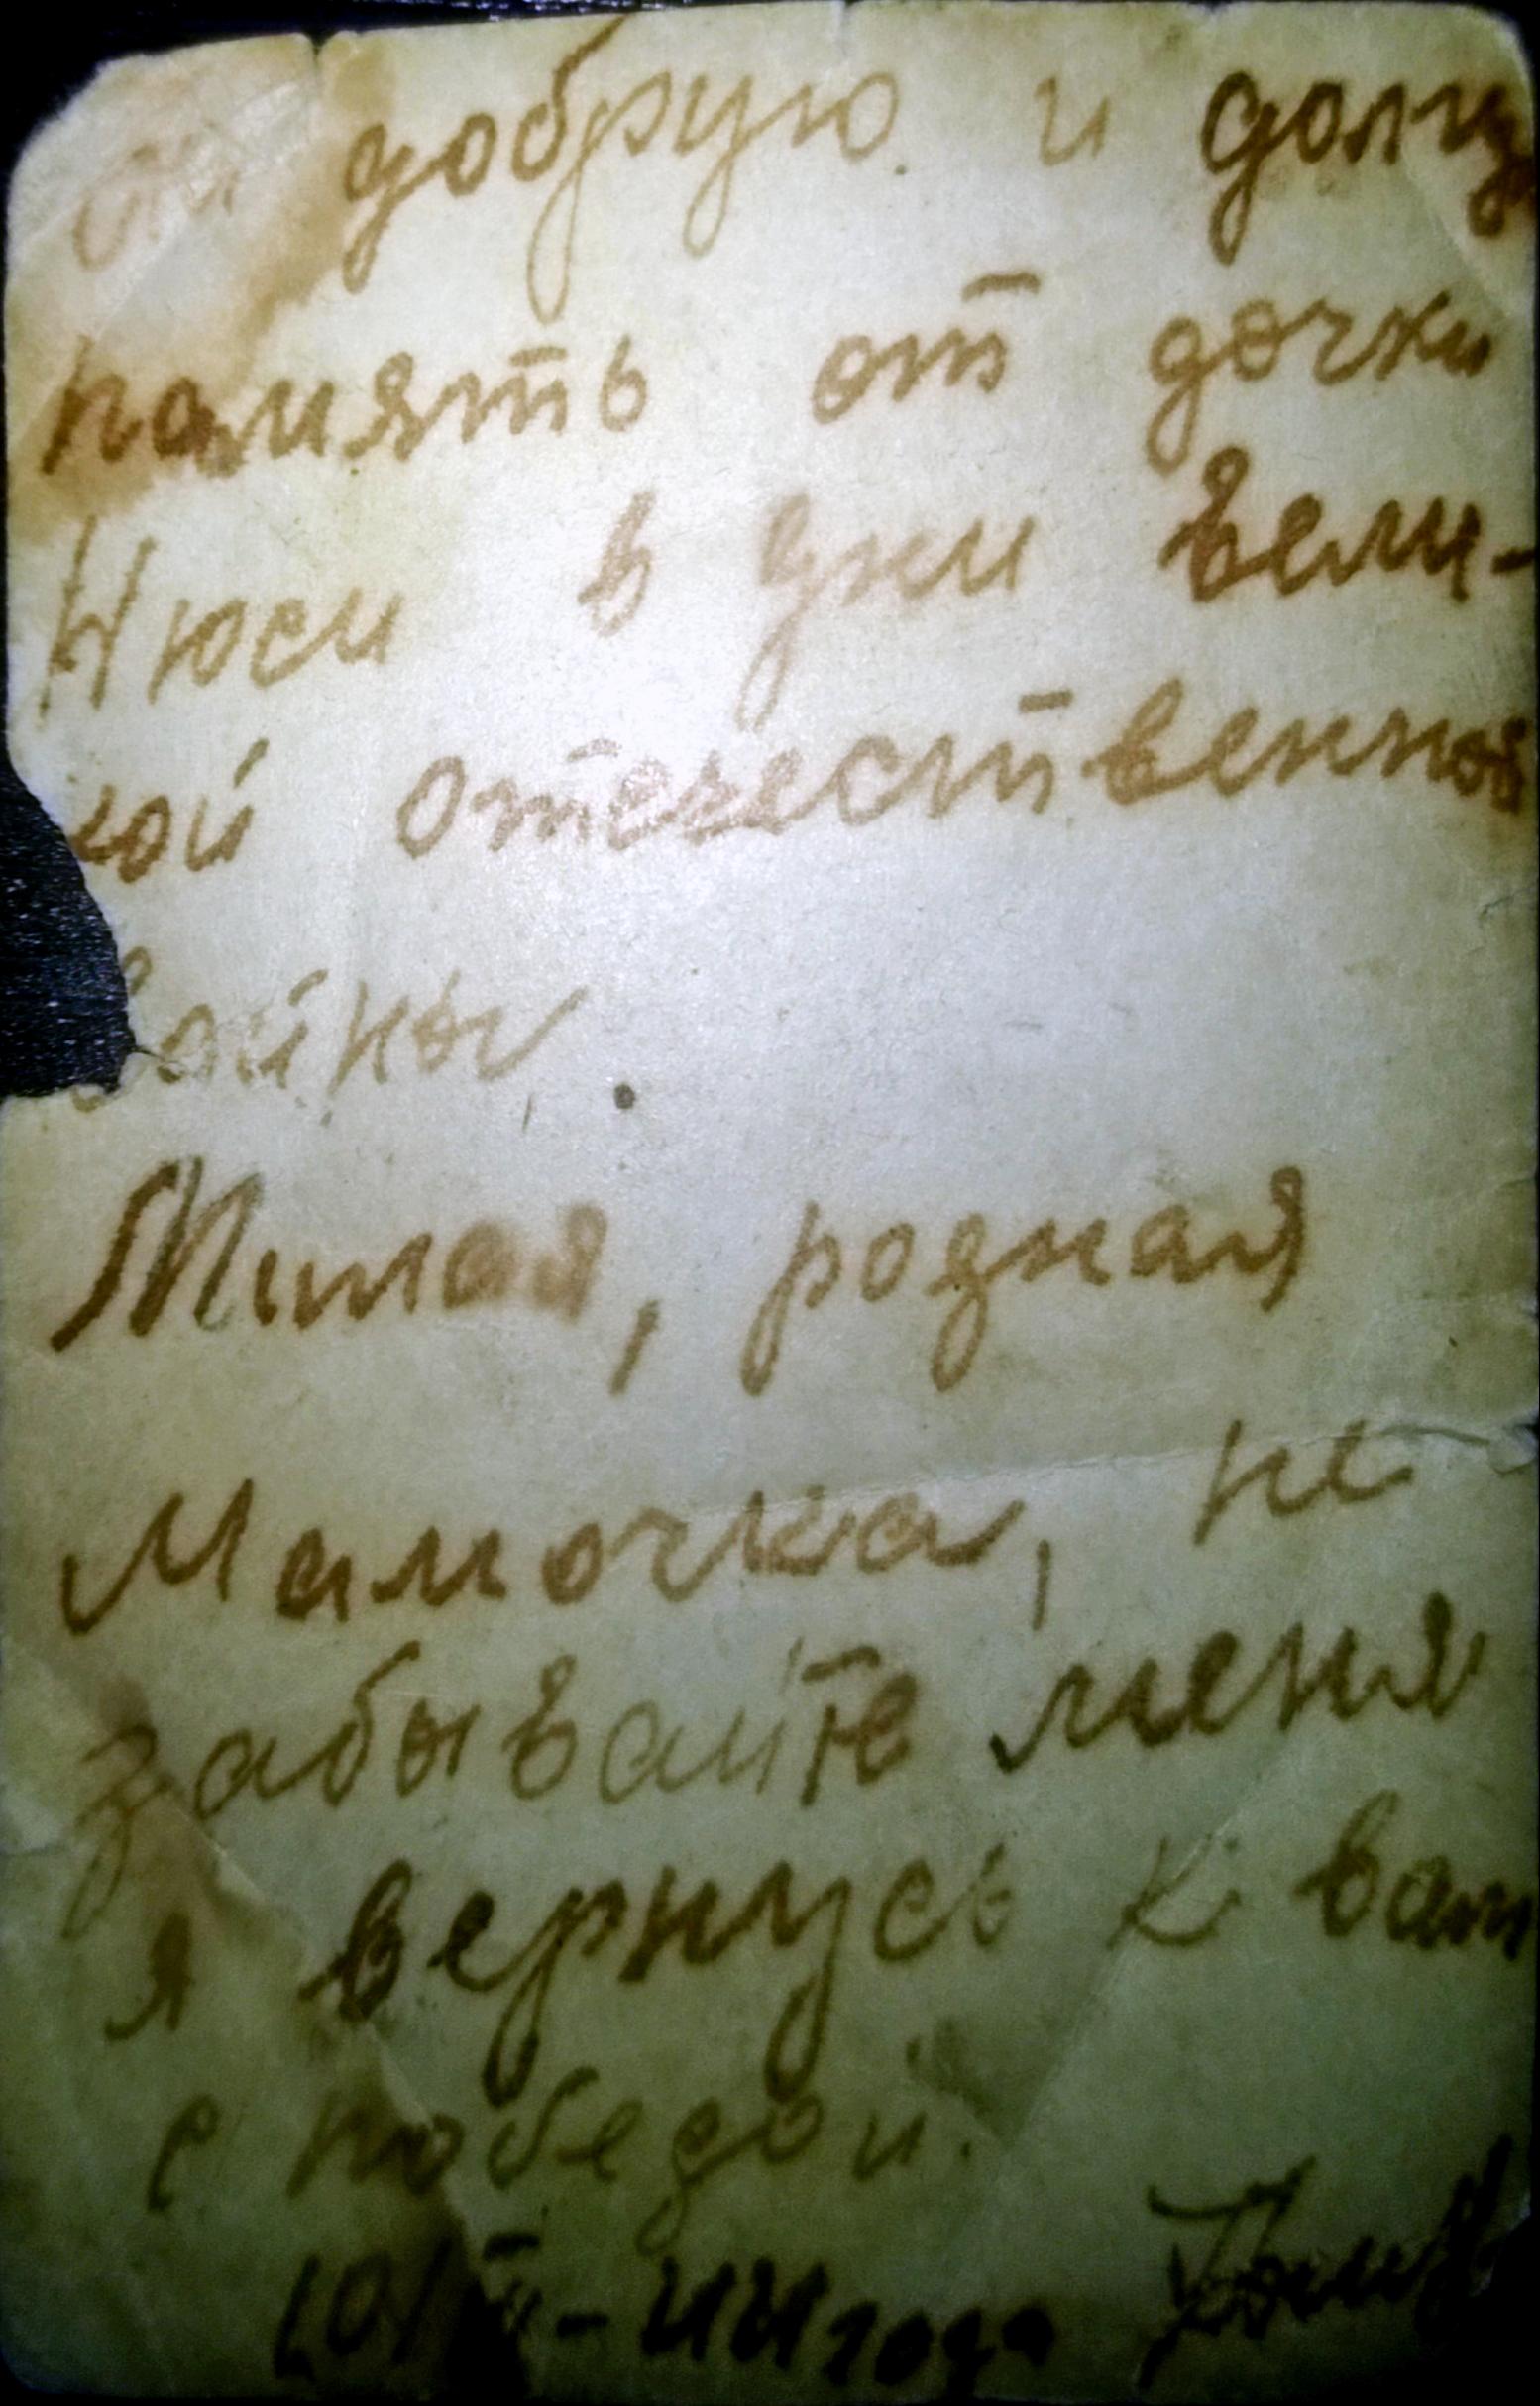 На добрую и долгу
память от дочки
Нюси в дни вели-
кой отечественной
войны.
Милая, родная
Мамочка, не
забывайте меня
я вернусь к вам
с победой.
44 года